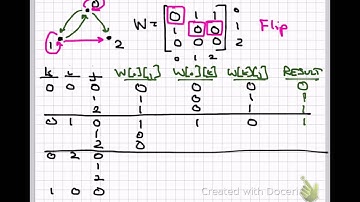 0
1 2
W = [ 0 1 1 0
1 0 0 1 Flip
0 0 0 2
0 1 2
k i j W[i][j] W[i][k] W[k][j] RESULT
0 0 0 0 0 0 0
1 1 0 1 1
2 1 0 1 1
0 1 0 1 1 0 1
1 0
2 0
0 2 0
1
2
1 0 0
Created with Doceri